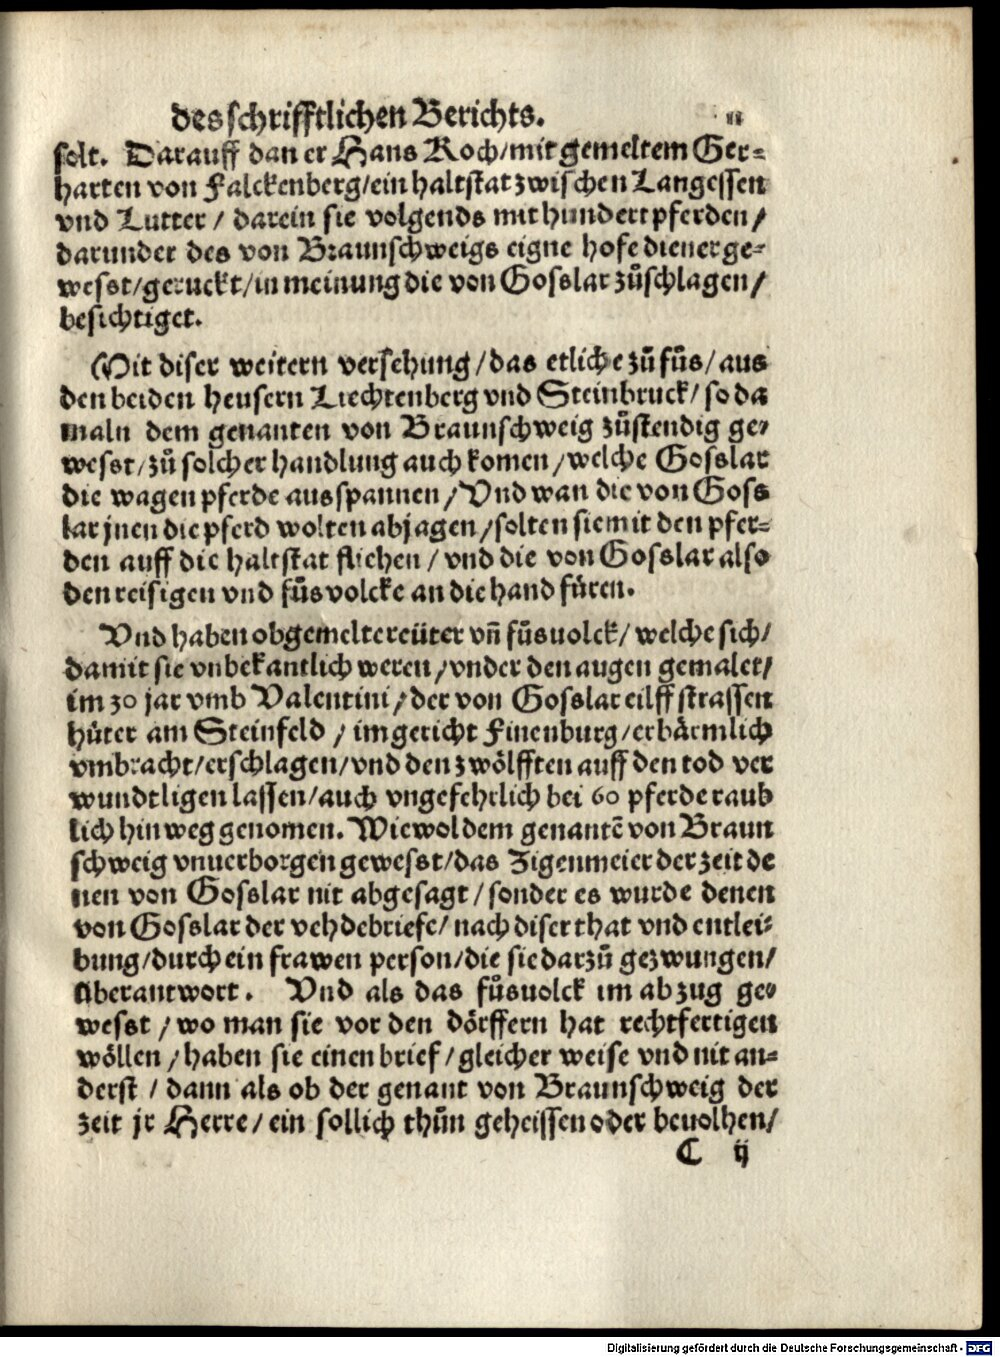 des schrifftlichen Berichts. 11
solt. Darauff dan er Hans Koch/mit gemeltem Ger-
harten von Falckenberg/ein haltstat zwischen Langessen
vnd Lutter / darein sie volgends mit hundert pferden /
darunder des von Braunschweigs eigne hofe diener ge-
wesst/geruckt/in meinung die von Gosslar zůschlagen /
besichtiget.
Mit diser weitern versehung /das etliche zů fůs/ aus
den beiden heusern Liechtenberg vnd Steinbruck/ so da
maln dem genanten von Braunschweig zůstendig ge-
wesst/zů solcher handlung auch komen /welche Gosslar
die wagen pferde ausspannen /Vnd wan die von Goss
lar jnen die pferd wolten abjagen /solten sie mit den pfer-
den auff die haltstat fliehen / vnd die von Gosslar also
den reisigen vnd fůsvolcke an die hand füren.
Vnd haben obgemelte reüter vñ fůsuolck/ welche sich/
damit sie vnbekantlich weren /vnder den augen gemalet/
im 30 jar vmb Valentini /der von Gosslar eilff strassen
hüter am Steinfeld / im gericht Finenburg/erbärmlich
vmbracht/erschlagen/vnd den zwölfften auff den tod ver
wundt ligen lassen/auch vngefehrlich bei 60 pferde raub
lich hinweg genomen. Wiewol dem genantē von Braun
schweig vnuerborgen gewesst/das Zigenmeier der zeit de
nen von Gosslar nit abgesagt / sonder es wurde denen
von Gosslar der vehdebriefe/ nach diser that vnd entlei-
bung/durch ein frawen person/die sie darzů gezwungen/
überantwort. Vnd als das fůsuolck im abzug ge-
wesst / wo man sie vor den dörffern hat rechtfertigen
wöllen /haben sie einen brief / gleicher weise vnd nit an-
derst / dann als ob der genant von Braunschweig der
zeit jr Herre / ein sollich thůn geheissen oder beuolhen/
C ij
Digitalisierung gefördert durch die Deutsche Forschungsgemeinschaft - DFG